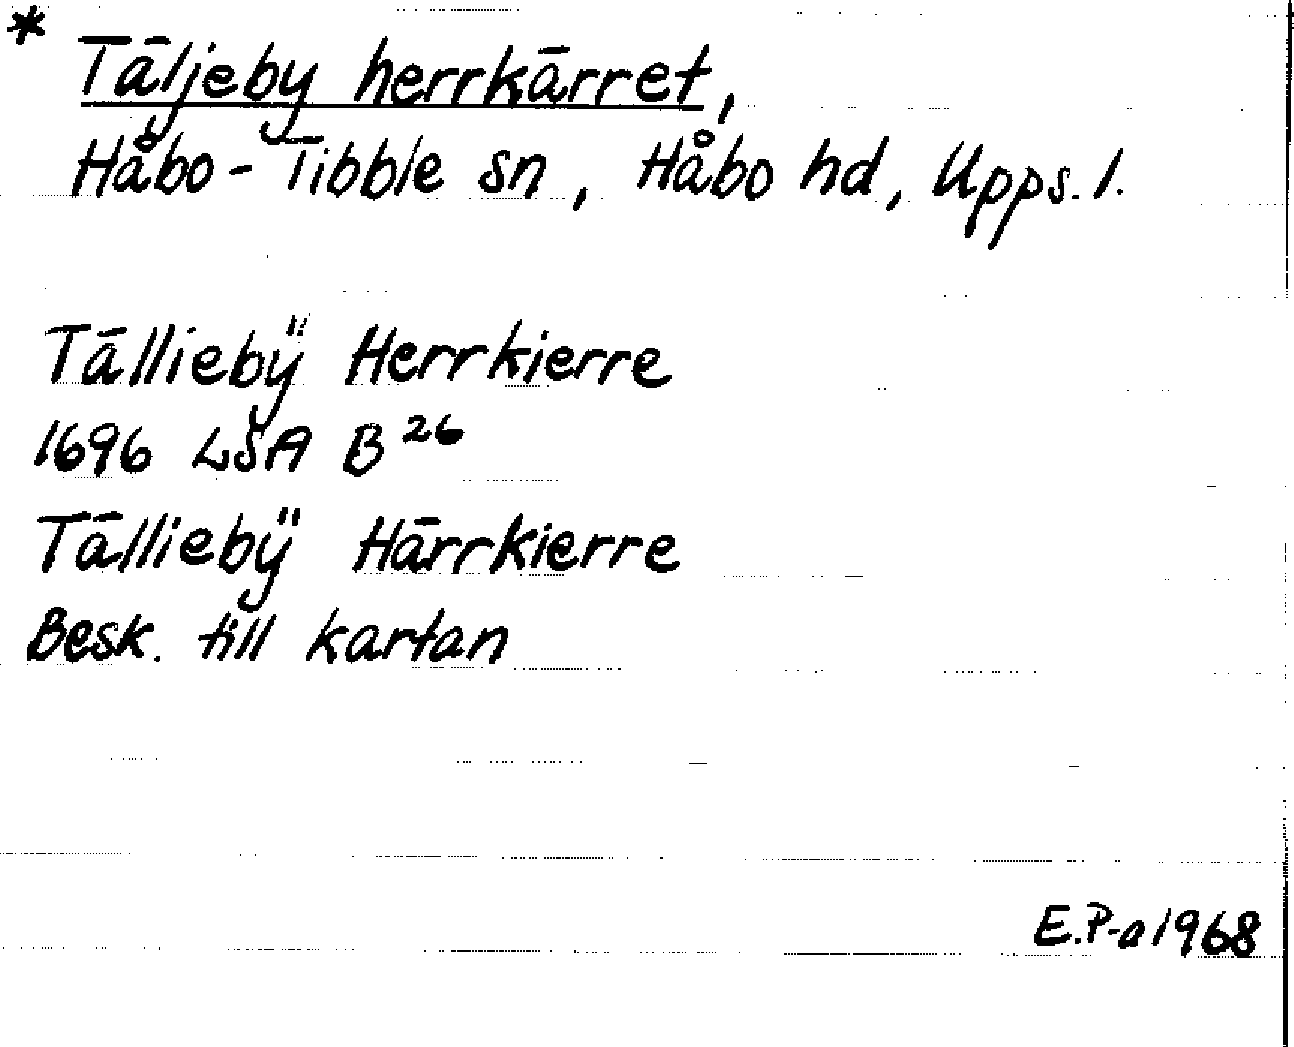 * Täljeby herrkärret,
Håbo-Tibble sn, Håbo hd, Upps. l.
Tälliebÿ Herrkierre
1696 LSA B²⁶
Tälliebÿ Härrkierre
Besk. till kartan
E.P-a 1968